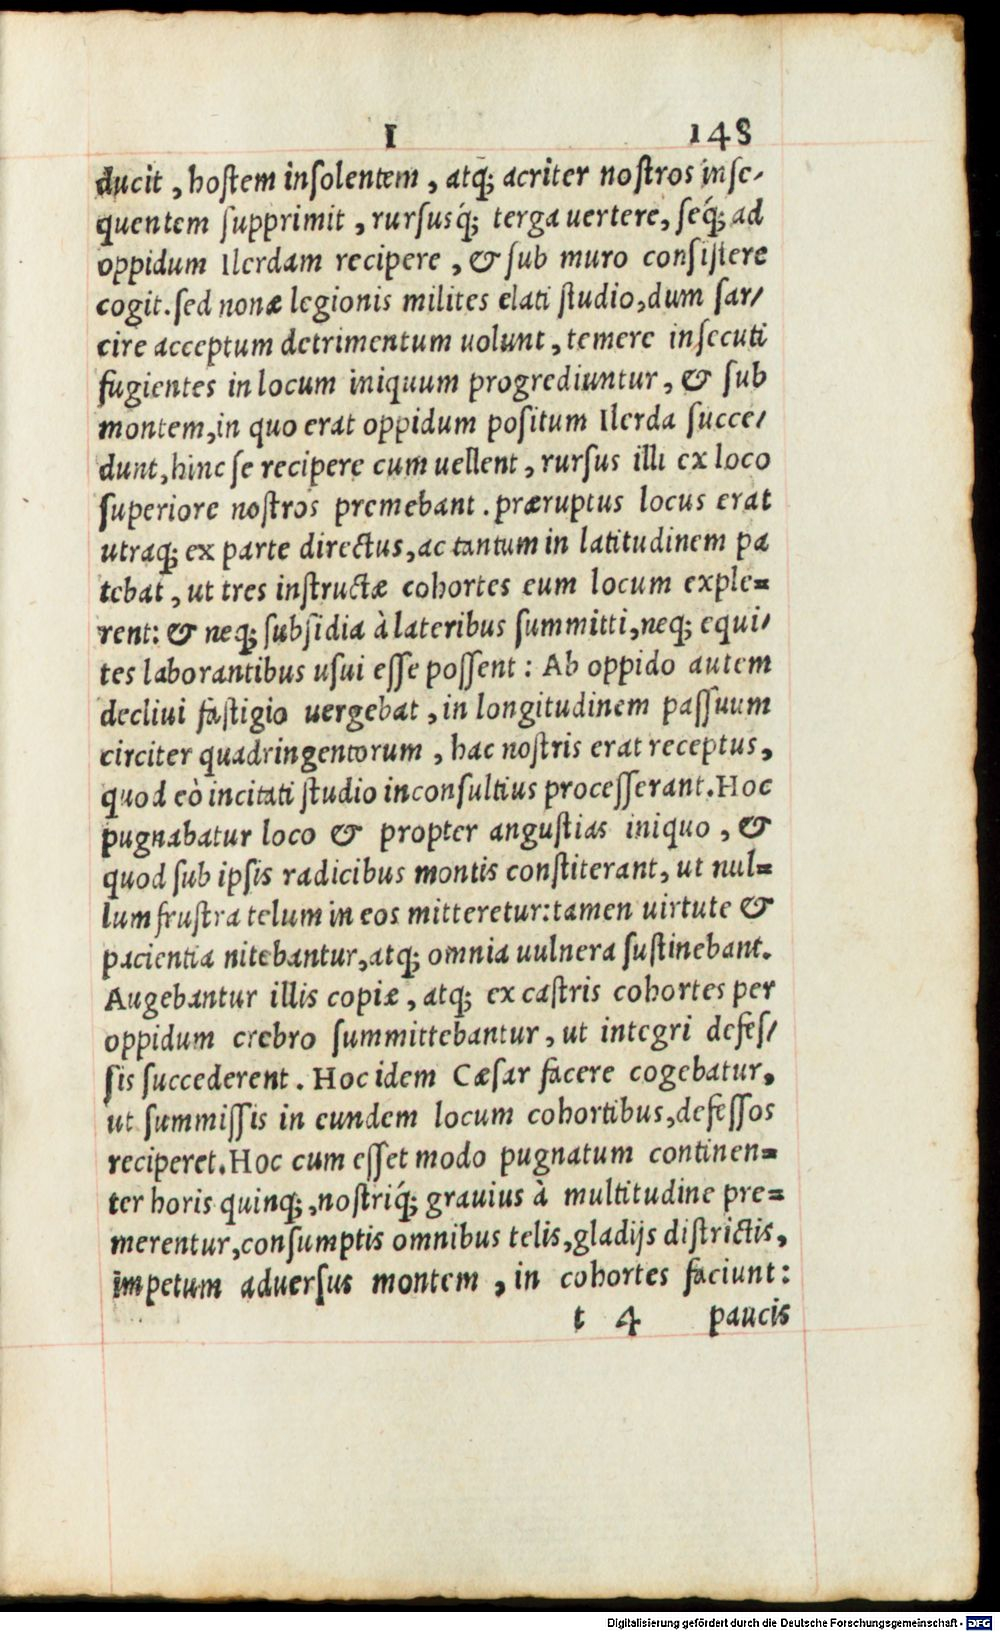 I 148
ducit, hostem insolentem, atq́; acriter nostros inse/
quentem supprimit, rursusq́; terga uertere, seq́; ad
oppidum Ilerdam recipere, & sub muro consistere
cogit. sed nonæ legionis milites elati studio, dum sar/
cire acceptum detrimentum uolunt, temere insecuti
fugientes in locum iniquum progrediuntur, & sub
montem, in quo erat oppidum positum Ilerda succe/
dunt, hinc se recipere cum uellent, rursus illi ex loco
superiore nostros premebant. præruptus locus erat
utraq; ex parte directus, ac tantum in latitudinem pa
tebat, ut tres instructæ cohortes eum locum exple=
rent: & neq; subsidia à lateribus summitti, neq; equi/
tes laborantibus usui esse possent: Ab oppido autem
decliui fastigio uergebat, in longitudinem passuum
circiter quadringentorum, hac nostris erat receptus,
quod eò incitati studio inconsultius processerant. Hoc
pugnabatur loco & propter angustias iniquo, &
quod sub ipsis radicibus montis constiterant, ut nul=
lum frustra telum in eos mitteretur: tamen uirtute &
pacientia nitebantur, atq; omnia uulnera sustinebant.
Augebantur illis copiæ, atq; ex castris cohortes per
oppidum crebro summittebantur, ut integri defes/
sis succederent. Hoc idem Cæsar facere cogebatur,
ut summissis in eundem locum cohortibus, defessos
reciperet. Hoc cum esset modo pugnatum continen=
ter horis quinq;, nostriq́; grauius à multitudine pre=
merentur, consumptis omnibus telis, gladijs districtis,
impetum aduersus montem, in cohortes faciunt:
t 4 paucis
Digitalisierung gefördert durch die Deutsche Forschungsgemeinschaft - DFG